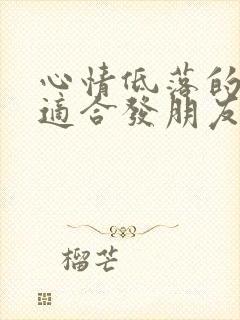 心情低落的
適合發朋友
榴芒